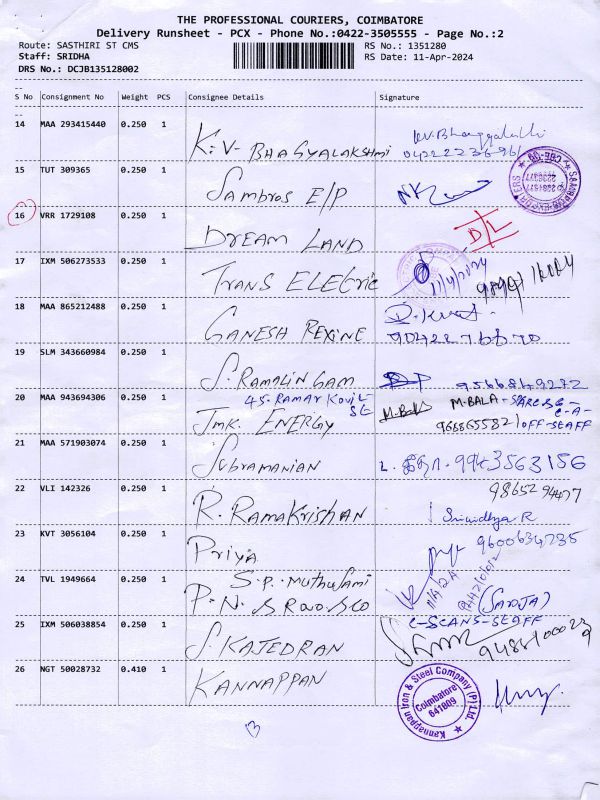 THE PROFESSIONAL COURIERS, COIMBATORE
Delivery Runsheet - PCX - Phone No.:0422-3505555 - Page No.:2
Route: SASTHIRI ST CMS RS No.: 1351280
Staff: SRIDHA RS Date: 11-Apr-2024
DRS No.: DCJB135128002
S No Consignment No Weight PCS Consignee Details Signature
14 MAA 293415440 0.250 1 K. V- BHAGYALAKSHMI
15 TUT 309365 0.250 1 Sambros E/P
16 VRR 1729108 0.250 1 DREAM LAND D/L
17 IXM 506273533 0.250 1 TRANS ELEtric 11/4/2024
18 MAA 865212488 0.250 1 GANESH REXINE
19 SLM 343660984 0.250 1 S. RAMALINGAM 9566849272
20 MAA 943694306 0.250 1 45. RAMAR KOVIL ST M. BALA
JMK. ENERGY OFF-STAFF
21 MAA 571903074 0.250 1 Subramanian 9943563156
22 VLI 142326 0.250 1 R. RamaKrishan 9865294477
Srividhya R
23 KVT 3056104 0.250 1 Priya 9600634735
24 TVL 1949664 0.250 1 S.P. Muthusami
P.N. (SAROJA)
25 IXM 506038854 0.250 1 S. KAJEDRAN C-SCANS-STAFF
26 NGT 50028732 0.410 1 KANNAPPAN
Kannappan Iron & Steel Company (P) Ltd.
Coimbatore
641009
13